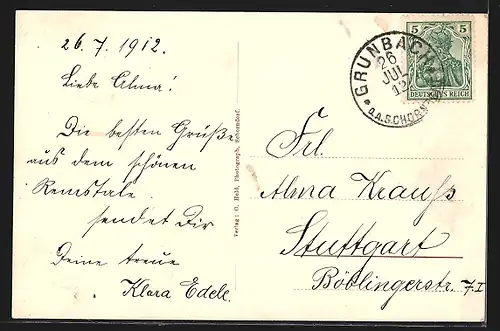 26. 7. 1912.
Liebe Alma!
Die besten Grüße
aus dem schönen
Remstale
sendet Dir
Deine treue
Klara Edele.
Verlag: G. Held, Photograph, Schorndorf.
GRUNBACH
26
JUL
12
O.A. SCHORN
5 5
DEUTSCHES REICH
Frl.
Alma Krauß
Stuttgart
Böblingerstr. 7.I